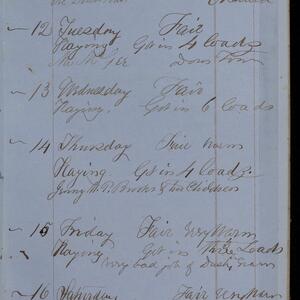 12 Tuesday Fair
Haying Got in 4 Loads
13 Wednesday Fair
Haying. Got in 6 Loads
14 Thursday Fair warm
Haying Got in 4 Loads.
Brooks & his Children
15 Friday Fair very warm
Haying Got in Three Loads
very bad job of
16 Saturday Fair very warm